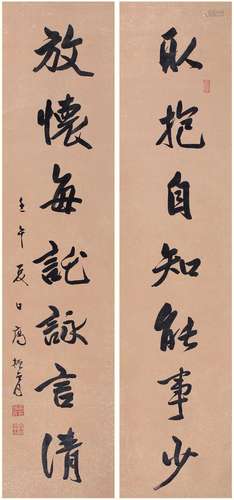 取抱自知能事少
放懷每託詠言清
壬午夏日